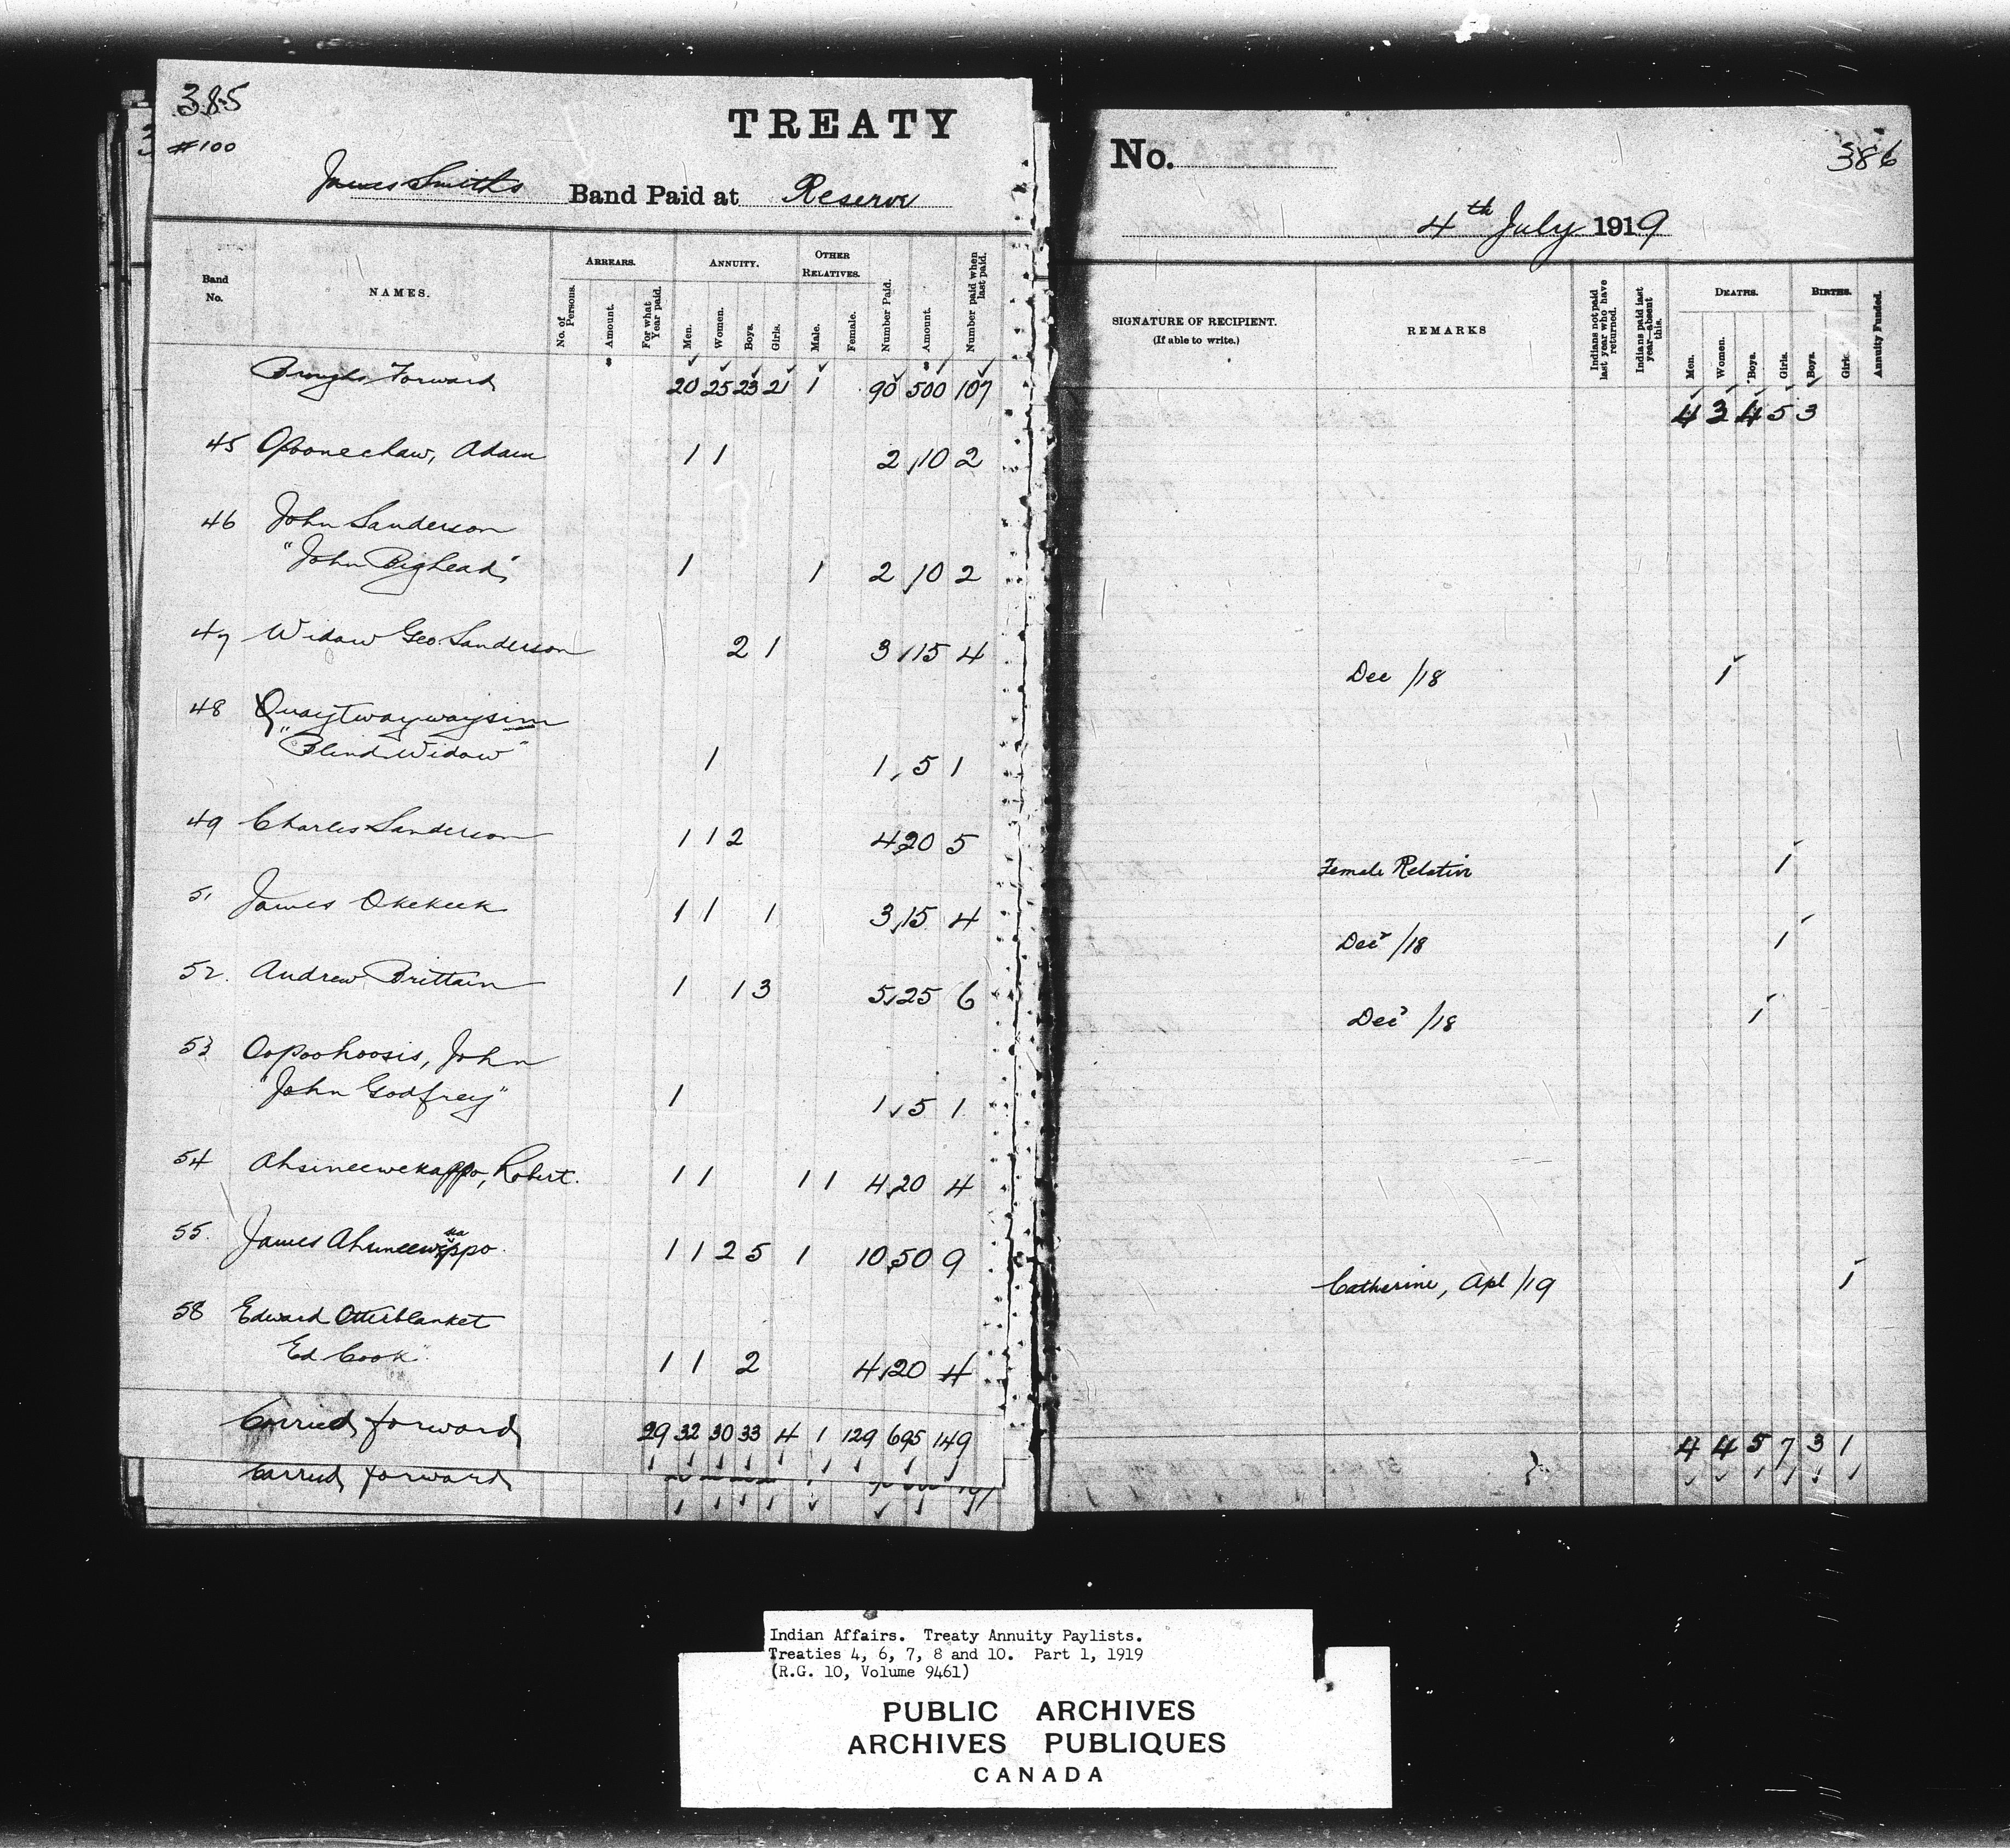 385
#100
TREATY
James Smiths Band Paid at Reserve
Band No.
NAMES.
ARREARS.
No. of Persons.
Amount.
For what Year paid.
ANNUITY.
Men.
Women.
Boys.
Girls.
OTHER RELATIVES.
Male.
Female.
Number Paid.
Amount.
Number paid when last paid.
Brought Forward 20 25 23 21 1 90 500 107
45 Opoonechaw, Adam 1 1 2 10 2
46 John Sanderson
"John Bighead" 1 1 2 10 2
47 Widow Geo. Sanderson 2 1 3 15 4
48 Quaytwaywaysim
"Blind Widow" 1 1 5 1
49 Charles Sanderson 1 1 2 4 20 5
51 James Okekeek 1 1 1 3 15 4
52. Andrew Brittain 1 1 3 5 25 6
53 Oopoohoosis, John
"John Godfrey" 1 1 5 1
54 Ahsineewekappo, Robert. 1 1 1 1 4 20 4
55. James 1 1 2 5 1 10 50 9
58 Edward Otterblanket
"Ed Cook" 1 1 2 4 20 4
Carried forward 29 32 30 33 4 1 129 695 149
Carried forward
No. 386
4th July 1919
SIGNATURE OF RECIPIENT.
(If able to write.)
REMARKS
Indians not paid last year who have returned.
Indians paid last year—absent this.
DEATHS.
Men.
Women.
Boys.
Girls.
BIRTHS.
Boys.
Girls.
Annuity Funded.
4 3 4 5 3
Dec /18 1
Female Relative 1
Dec /18 1
Dec /18 1
Catherine, Apl /19 1
4 4 5 7 3 1
Indian Affairs. Treaty Annuity Paylists.
Treaties 4, 6, 7, 8 and 10. Part 1, 1919
(R.G. 10, Volume 9461)
PUBLIC ARCHIVES
ARCHIVES PUBLIQUES
CANADA